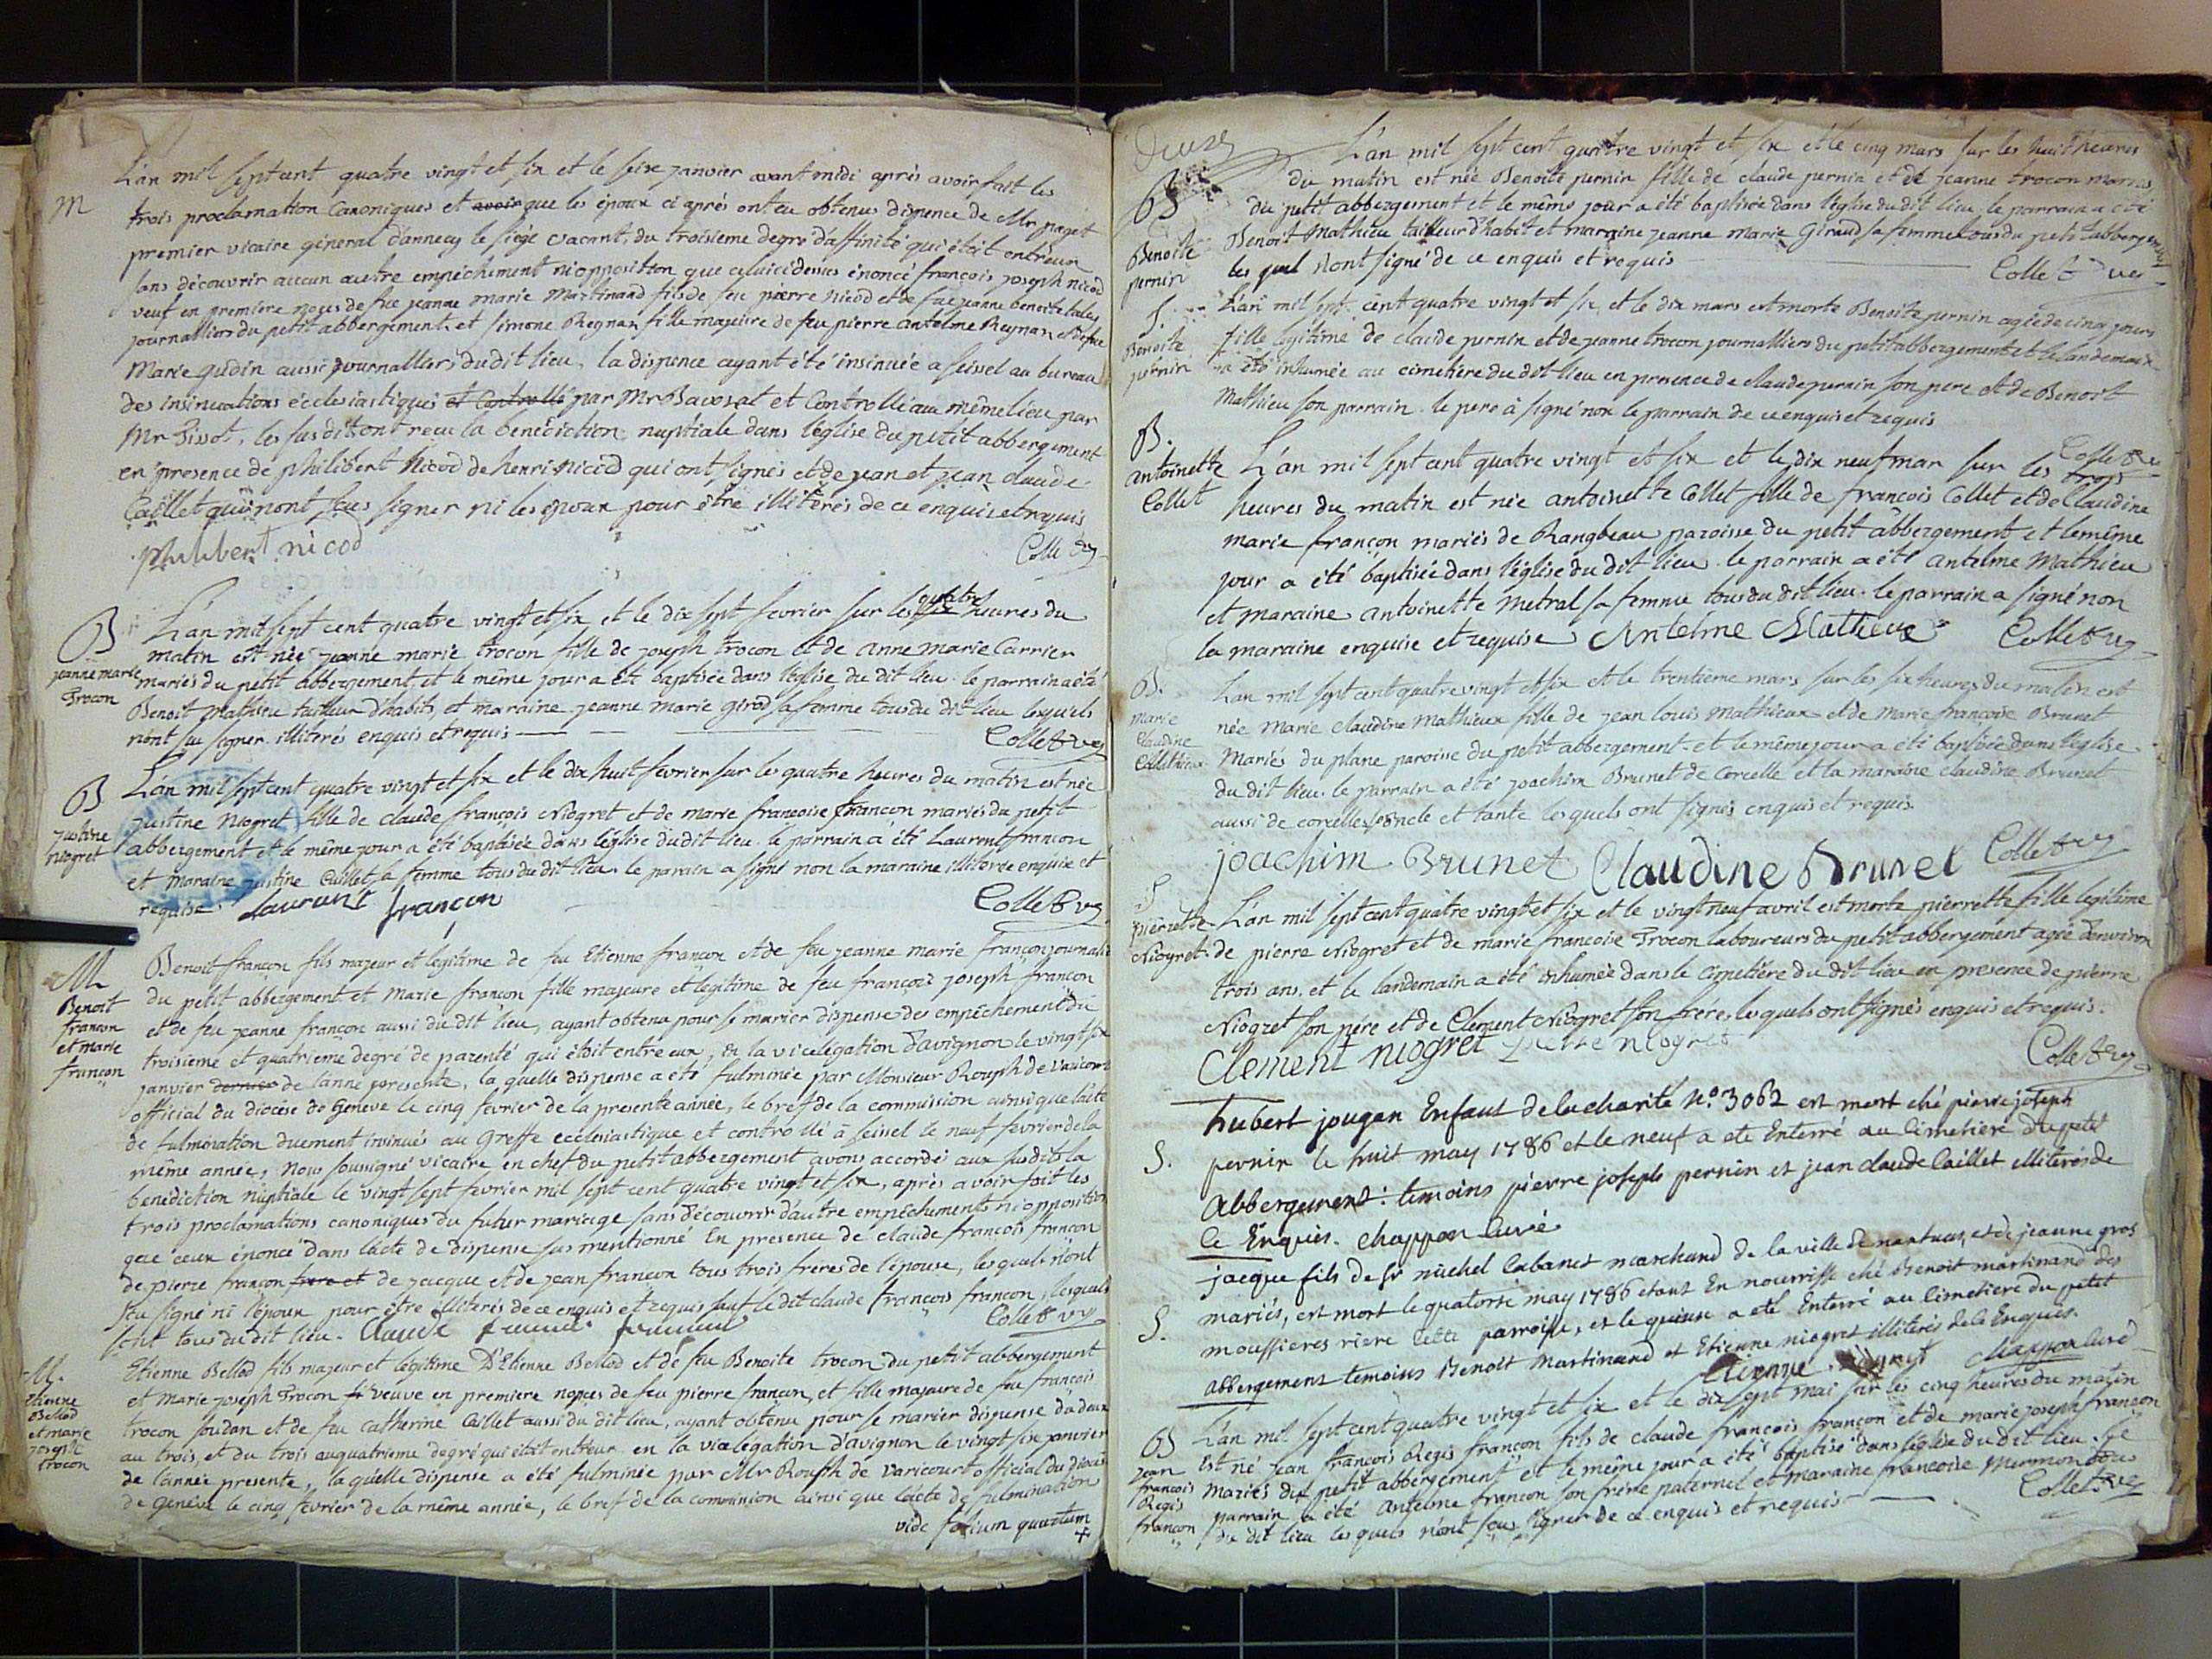 M
L'an mil sept cent quatre vingt et six et le seize janvier avant midi après avoir fait les
trois proclamation Canoniques et avoir que les époux ci après ont eu obtenus dispence de Mr piaget
premier vicaire géneral d'annecy le siege vacant, du troisieme degré d'affinité qui étoit entreux
sans découvrir aucun autre empéchement ni opposition que celui cidessus énoncé françois joseph nicod
veuf en premiere noces de feue jeanne marie Martinand fils de feu pierre nicod et de feue jeanne benoite
journalliers du petit abbergement et simone Reynan fille majeure de feu pierre antelme Reynan et de feue
Marie gudin aussi journalliers du dit lieu, la dispence ayant été insinuée a seissel au bureau
des insinuations écclesiastiques et Controllé par Mr Bavosat et Controllé au même lieu par
Mr Tissot, les susdits ont recu la bénédiction nuptiale dans l'église du petit abbergement
en presence de philibert Nicod de henri nicod qui ont signés et de jean et jean claude
Caillet qui n'ont seus signer ni les époux pour être illiterés de ce enquis et requis
philibert nicod
Collet vy
B
jeanne marie
Trocon
L'an mil sept cent quatre vingt et six et le dix sept fevrier sur les quatre heures du
matin est née jeanne marie trocon fille de joseph trocon et de anne marie Carrier
mariés du petit abbergement et le même jour a été baptisée dans l'église du dit lieu. le parrain a été
Benoit Mathieu tailleur d'habits et maraine jeanne marie girod sa femme tous du dit lieu lesquels
n'ont su signer illiterés enquis et requis
Collet vy
B
justine
niogret
L'an mil sept cent quatre vingt et six et le dix huit fevrier sur les quatre heures du matin est née
justine Niogret fille de claude françois Niogret et de marie francoise françon mariés du petit
abbergement et le même jour a été baptisée dans l'église du dit lieu. le parrain a été Laurent françon
et Maraine justine Caillet sa femme tous du dit lieu. le parain a signé non la maraine illiterée enquise et
requise. Laurant françon
Collet vy
M
Benoit
françon
et marie
françon
Benoit françon fils majeur et légitime de feu Etienne françon et de feu jeanne marie françon journalier
du petit abbergement et Marie françon fille majeure et légitime de feu françois joseph françon
et de feu jeanne françon aussi du dit lieu, ayant obtenu pour se marier dispense des empéchements du
troisieme et quatrieme degré de parenté qui étoit entre eux, en la vicelégation d'avignon le vingt six
janvier dernier de l'anné presente, la quelle dispense a été fulminée par Monsieur Rouph de Varicourt
official du diocèse de Geneve le cinq fevrier de la presente année, le bref de la commission ainsi que l'acte
de fulmination duement insinués au Greffe ecclesiastique et controllé à seissel le neuf fevrier de la
même année, Nous soussigné vicaire en chef du petit abbergement avons accordé aux susdits la
benediction nuptiale le vingt sept fevrier mil sept cent quatre vingt et six, après avoir fait les
trois proclamations canoniques du futur mariage sans découvrir d'autre empéchements ni opposition
que ceux énoncé dans l'acte de dispense sus mentionné En presence de claude francois françon
de pierre françon frere et de jacque et de jean françon tous trois frères de l'épouse, les quels n'ont
seu signé ni l'époux pour être illiterés de ce enquis et requis sauf le dit claude françois françon, lesquels
sont tous du dit lieu. Claude
Collet vy
M.
Etienne
Bellod
et marie
joseph
trocon
Etienne Bellod fils majeur et légitime D'Etienne Bellod et de feu Benoite trocon du petit abbergement
et Marie joseph Trocon veuve en premiere nopces de feu pierre françon, et fille majeure de feu françois
trocon soudan et de feu Catherine Caillet aussi du dit lieu, ayant obtenu pour se marier dispense du deux
au trois, et du trois au quatrieme degré qui étoit entreux en la vicelégation d'avignon le vingt six janvier
de l'année presente, la quelle dispense a été fulminée par Mr Rouph de Varicourt official du diocese
de genève le cinq fevrier de la même année, le bref de la commission ainsi que l'acte de fulmination
vide folium quartum
+
deux
B
Benoite
pernin
L'an mil sept cent quatre vingt et six et le cinq mars sur les huit heures
du matin est née Benoite pernin fille de claude pernin et de jeanne trocon mariés
du petit abbergement et le même jour a été baptisée dans l'église du dit lieu. le parrain a été
Benoit Mathieu tailleur d'habit et maraine jeanne marie Giraud sa femme tous du petit abbergement
les quel n'ont signé de ce enquis et requis
Collet vy
S.
Benoite
pernin
L'an mil sept cent quatre vingt et six, et le dix mars est morte Benoite pernin agée de cinq jours
fille légitime de claude pernin et de jeanne trocon journalliers du petit abbergement et le landemain
a été inhumée au cimetière du dit lieu en presence de claude pernin son pere et de Benoit
Mathieu son parrain. le pere à signé non le parrain de ce enquis et requis
Collet vy
B.
antoinette
Collet
L'an mil sept cent quatre vingt et six et le dix neuf mar sur les trois
heures du matin est née antoinette Collet fille de francois Collet et de Claudine
marie françon mariés de Rangbeau paroisse du petit abbergement, et le même
jour a été baptisée dans l'église du dit lieu. le parrain a été antelme Mathieu
et maraine antoinette Metral sa femme tous du dit lieu. le parrain a signé non
la maraine enquise et requise Antelme Mathieux
Collet vy
B.
marie
Claudine
Mathieux
L'an mil sept cent quatre vingt et six et le trentième mars sur les six heures du matin est
née Marie Claudine Mathieux fille de jean louis Mathieux et de Marie françoise Brunet
Mariés du plane paroisse du petit abbergement et le même jour a été baptisée dans l'église
du dit lieu. le parrain a été joachim Brunet de Corcelle et la maraine claudine Brunet
aussi de corcelles oncle et tante lesquels ont signés enquis et requis
joachim Brunet Claudine Brunet
Collet vy
S
pierrette
Niogret
L'an mil sept cent quatre vingt et six et le vingt neuf avril est morte pierrette fille légitime
de pierre Niogret et de marie francoise Trocon laboureurs du petit abbergement agée d'environ
trois ans, et le landemain a été inhumée dans le cimetière du dit lieu en presence de pierre
Niogret son pére et de Clement Niogret son frère, les quels ont signés enquis et requis.
Clement niogret pierre niogret
Collet vy
S.
hubert jougan Enfant de la charité N.º 3062 est mort ché pierre joseph
pernin le huit may 1786 et le neuf a été Enterré au Cimetiere du petit
Abbergement: temoins pierre joseph pernin et jean claude Caillet illiterés de
Ce Enquis. Chappon Curé
S.
jacque fils de Sr michel Cabanet marchand de la ville de nantua, et de jeanne gros
mariés, est mort le quatorse may 1786 etant En nourrisse ché Benoit martinand des
moussieres riere Cette parroisse, et le quinse a été Enterré au Cimetiere du petit
abbergement temoins Benoit Martinand et Etienne niogret illiterés de Ce Enquis.
Etienne Chappon Curé
B
jean
françois
Regis
françon
L'an mil sept cent quatre vingt et six et le dix sept mai sur les cinq heures du matin
Est né jean françois Regis françon fils de claude françois françon et de marie joseph françon
Mariés du petit abbergement et le même jour a été baptisé dans l'église du dit lieu. le
parrain a été antelme françon son frère paternel et maraine francoise Mermon tous
du dit lieu les quels n'ont seus signer de ce enquis et requis
Collet vy